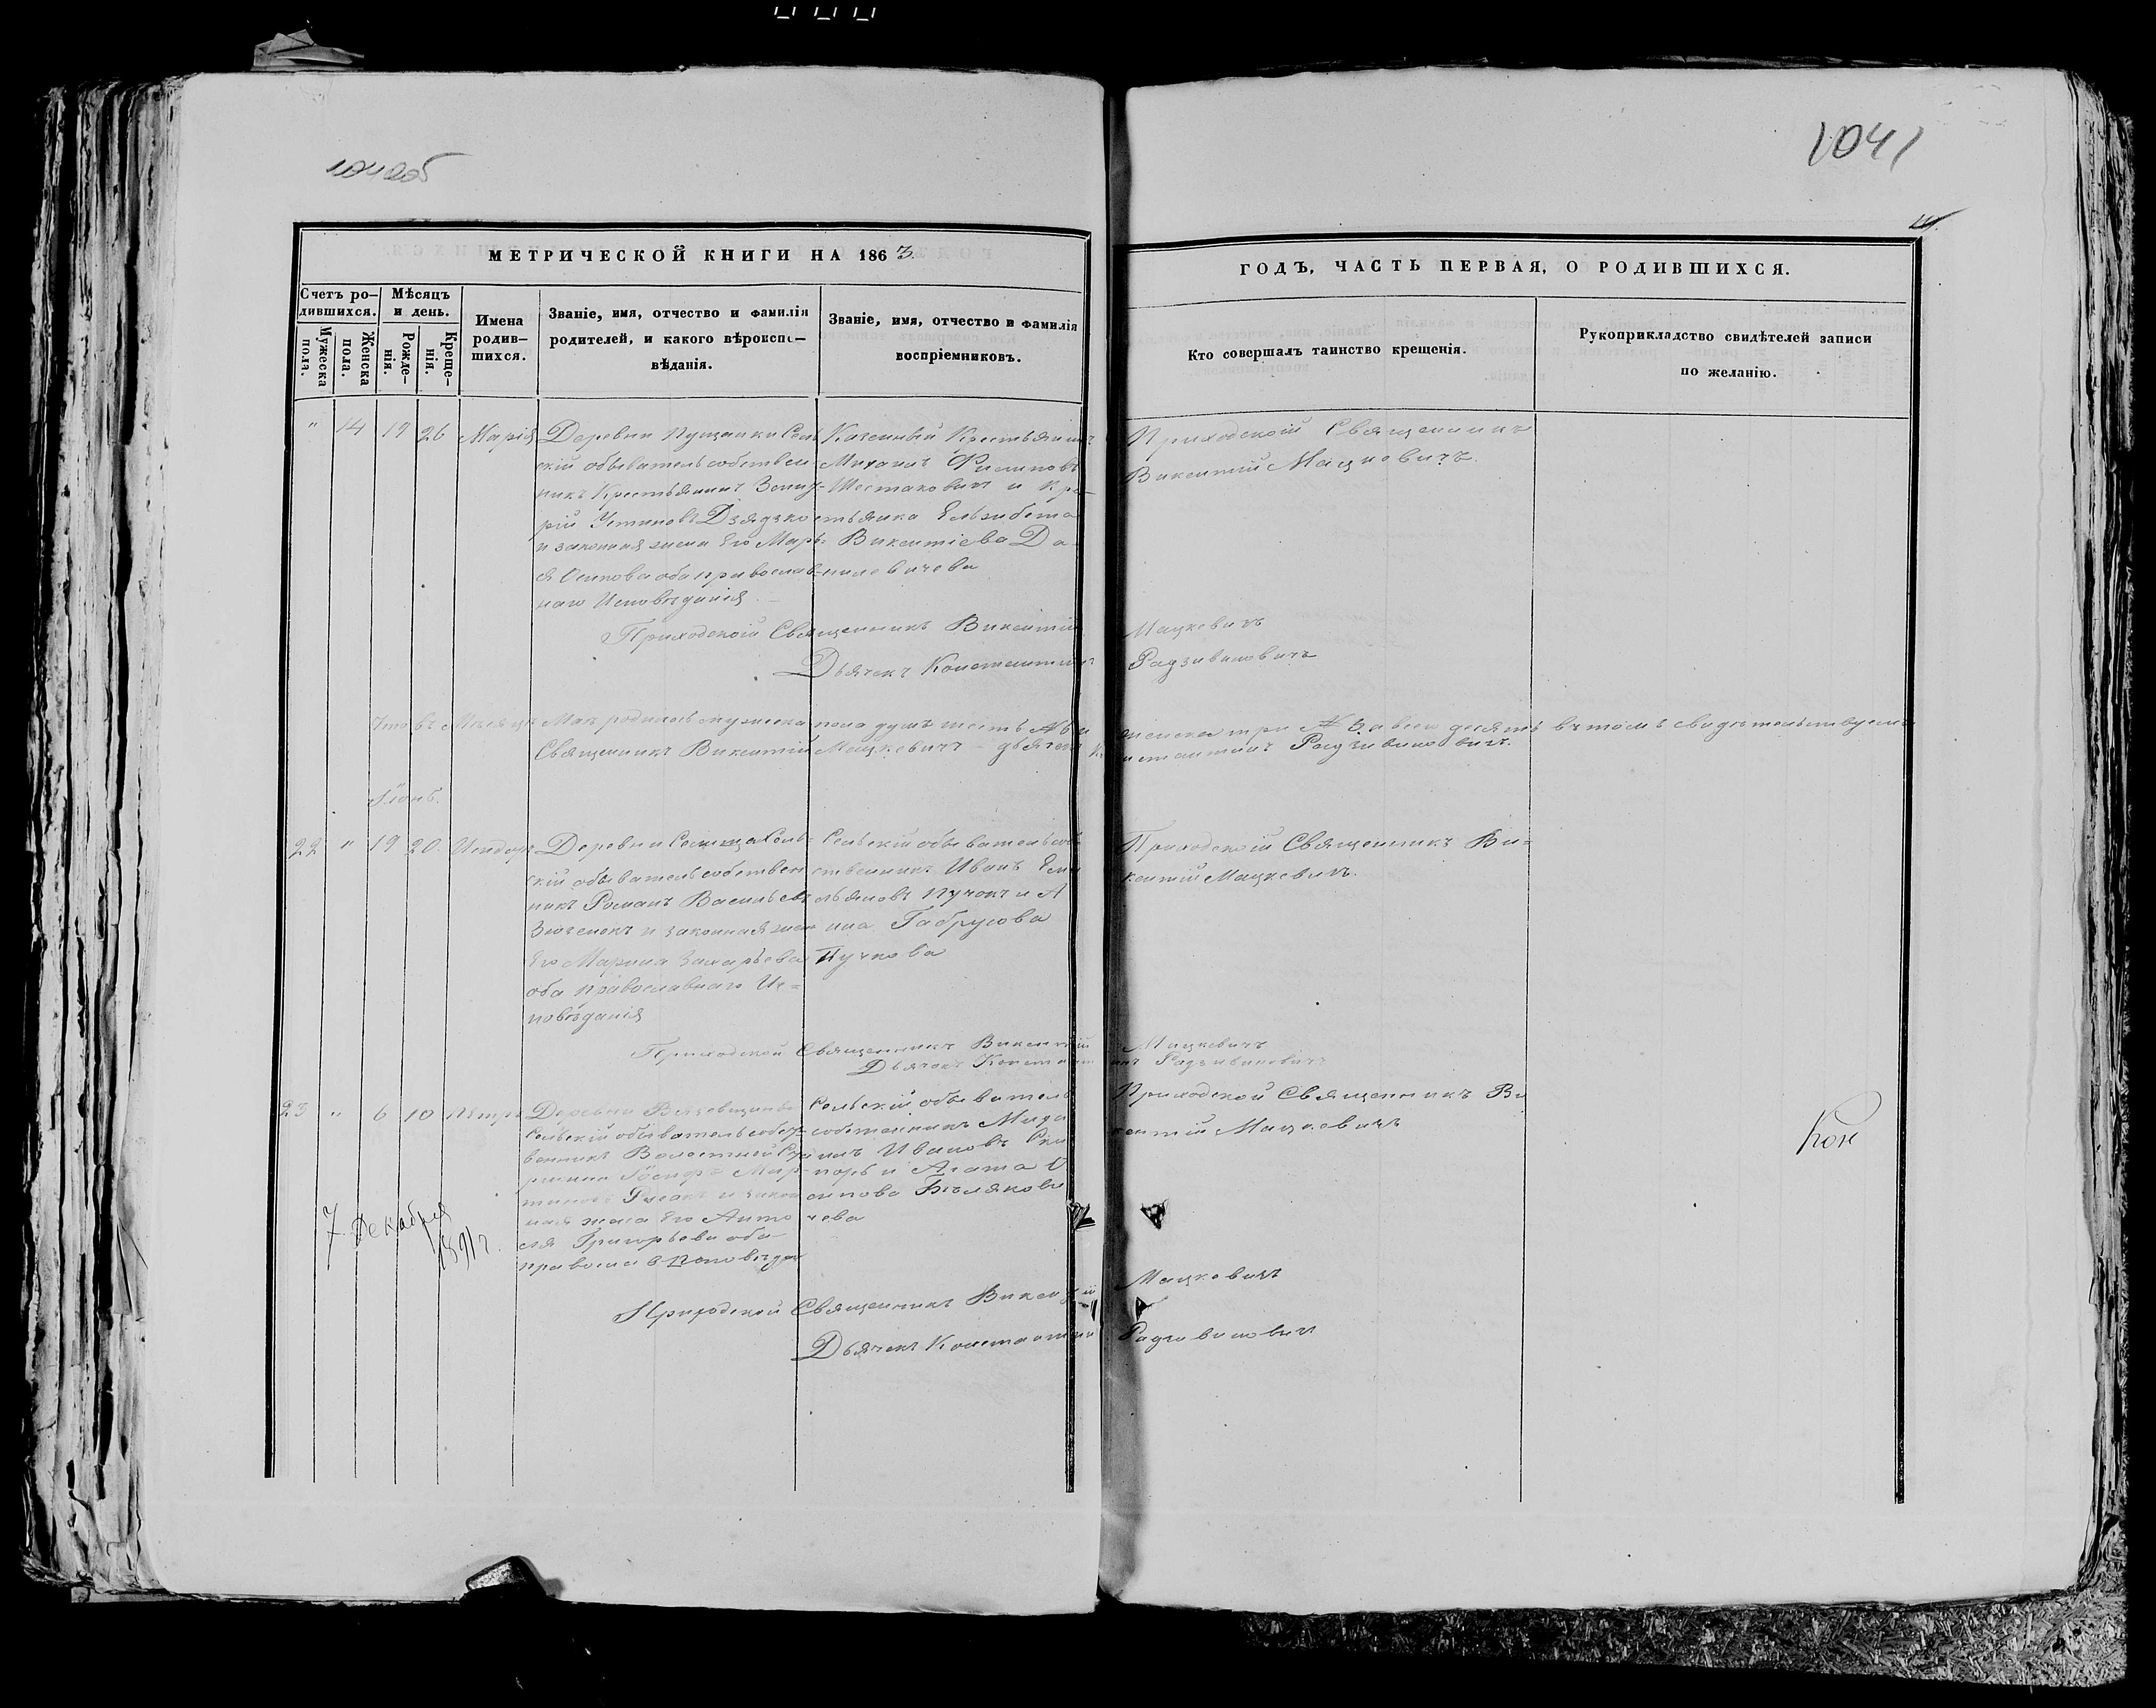 1041
МЕТРИЧЕСКОЙ КНИГИ НА 1863.
ГОДЪ, ЧАСТЬ ПЕРВАЯ, О РОДИВШИХСЯ.
Счетъ ро-
дившихся.
Мужеска
пола.
Женска
пола.
Мѣсяцъ
и день.
Рожде-
нія.
Креще-
нія.
Имена
родив-
шихся.
Званіе, имя, отчество и фамилія
родителей, и какого вѣроиспо-
вѣданія.
Званіе, имя, отчество и фамилія
воспріемниковъ.
Кто совершалъ таинство крещенія.
Рукоприкладство свидѣтелей записи
по желанію.
" 14 19 26 Марія
Деревни Сель-
скій обыватель собствен-
никъ Крестьянинъ
Устиновъ
и законная жена Его Марь-
я Осипова оба православ-
наго Исповѣданія
Казенный Крестьянинъ
Михаилъ Филиповъ
Шестаковичъ и Кре-
стьянка Елизабета
Викентіева Да-
нилевичева
Приходской Священникъ
Викентій Мацкевичъ.
Приходской Священникъ Викентій Мацкевичъ
Дьячекъ Константинъ Радзивиновичъ
Что въ Мѣсяцѣ Маѣ родилось мужеска пола душъ шесть женска три а всего десять въ томъ свидѣтельствуемъ
Священникъ Викентій Мацкевичъ – дьячекъ Константинъ Радзивиновичъ.
Іюнь.
22 " 19 20.
Деревни Сель-
скій обыватель собствен-
никъ Романъ Васильевъ
и законная жена
Его Марина Захарьева
оба православнаго Ис-
повѣданія
Сельскій обыватель соб-
ственникъ Иванъ Еми-
льяновъ Пучокъ и А-
нна Габрусова
Пучкова
Приходской Священникъ Ви-
кентій Мацкевичъ.
Приходской Священникъ Викентій Мацкевичъ
Дьячокъ Константинъ Радзивиновичъ
23 " 6 10 Петръ
Деревни
Сельскій обыватель собст-
венникъ Волостной Ста-
ршина Іосифъ Мар-
тиновъ и закон-
ная жена Его Анто-
ля Григорьева оба
православ. Исповѣдан
Сельскій обыватель
собственникъ Миха-
илъ Ивановъ
и Агата О-
сипова Бѣлякови-
чева
Приходской Священникъ Ви-
кентій Мацкевичъ
Кон
7 Декабря
1891 г.
Приходской Священникъ Викентій Мацкевичъ
Дьячекъ Константинъ Радзивиновичъ